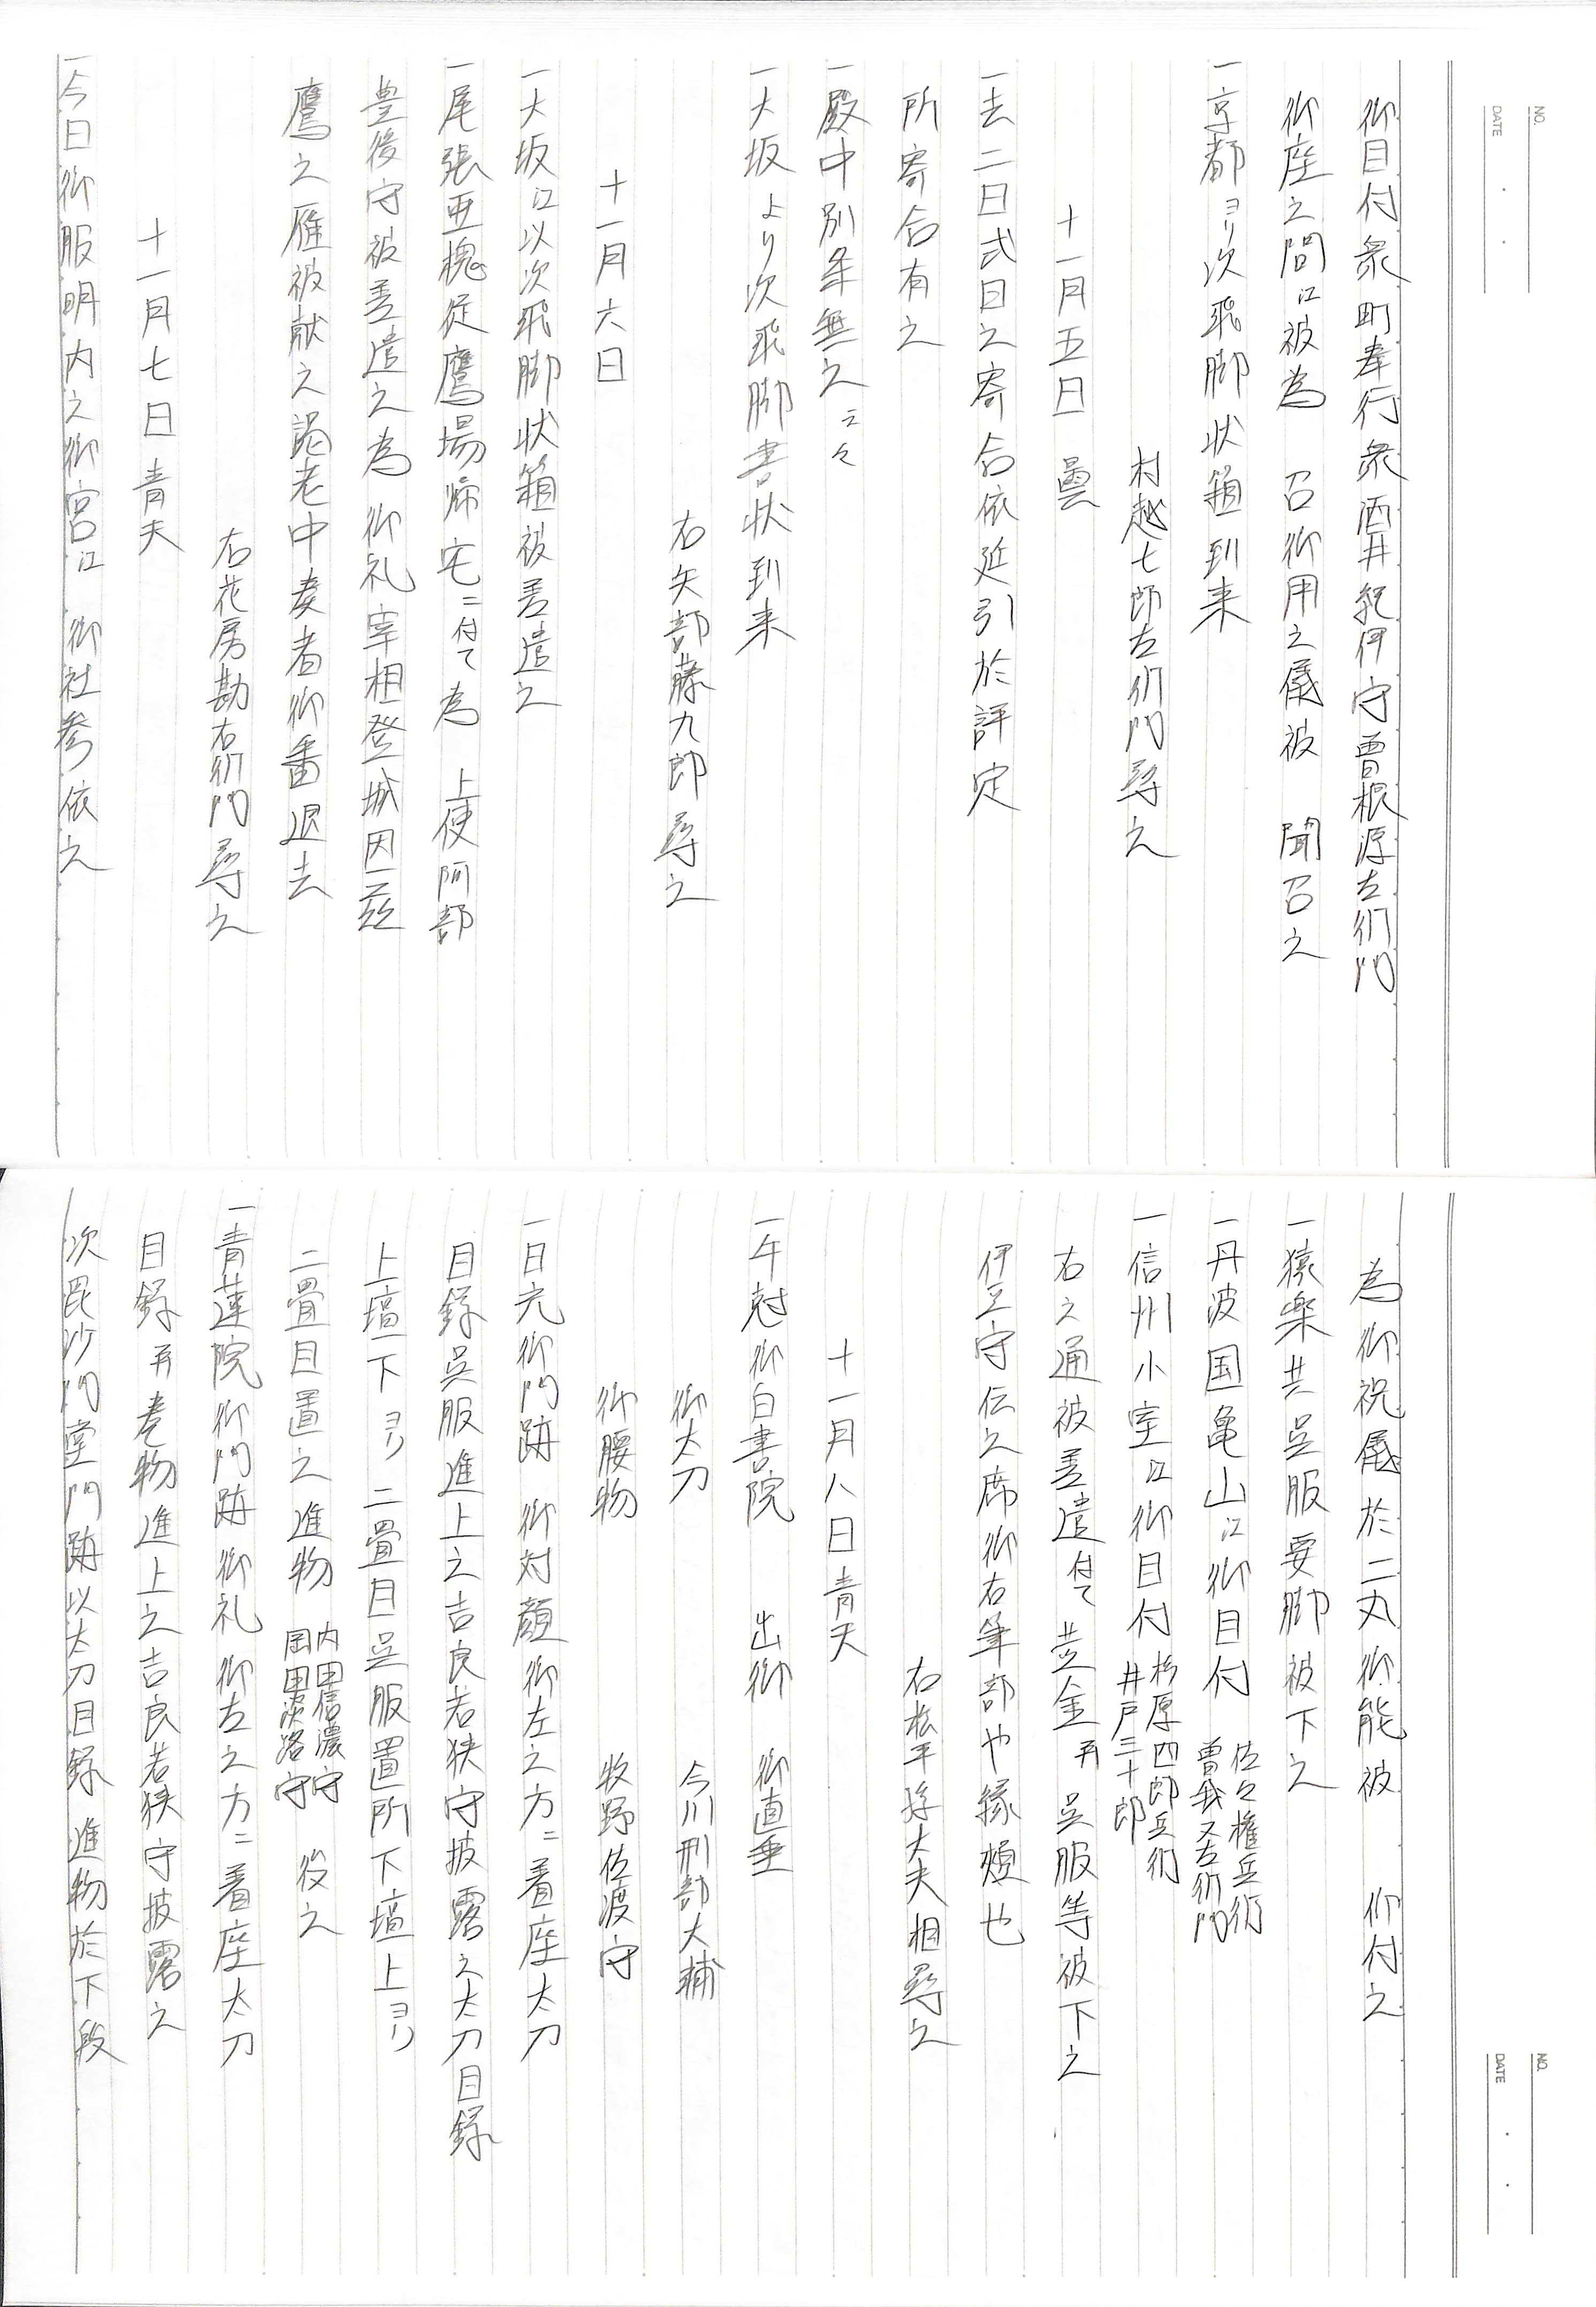 NO.
DATE
御目付衆町奉行衆酒井紀伊守曽根源左衛門
御座之間江被為　召御用之儀被　聞召之
一京都ヨリ次飛脚状箱到来
村越七郎左衛門尋之
十一月五日　曇
一去二日式日之寄合依延引於評定
所寄合有之
一殿中別条無之云々
一大坂より次飛脚書状到来
右矢部藤九郎尋之
十一月六日
一大坂江以次飛脚状箱被差遣之
一尾張亜槐従鷹場帰宅ニ付て為　上使阿部
豊後守被差遣之為　御礼宰相登城因茲
鷹之雁被献之謁老中奏者御番退去
右花房勘右衛門尋之
十一月七日　青天
一今日御服明内之御宮江　御社参依之
NO.
DATE
為御祝儀於二丸御能被　仰付之
一猿楽共呉服要脚被下之
一丹波国亀山江御目付　佐々権兵衛　曽我又左衛門
一信州小室江御目付　杉原四郎兵衛　井戸三十郎
右之通被差遣付て黄金并呉服等被下之
伊豆守伝之席御右筆部や縁頬也
右松平孫大夫相尋之
十一月八日青天
一午尅御白書院　出御　御直垂
御太刀　今川刑部大輔
御腰物　牧野佐渡守
一日光御門跡　御対顔御左之方ニ着座太刀
目録呉服進上之吉良若狭守披露之太刀目録
上壇下ヨリ二畳目呉服置所下壇上ヨリ
二畳目置之　進物　内田信濃守　岡田淡路守　役之
一青蓮院御門跡御礼　御左之方ニ着座太刀
目録并巻物進上之吉良若狭守披露之
次毘沙門堂門跡以太刀目録　進物於下段